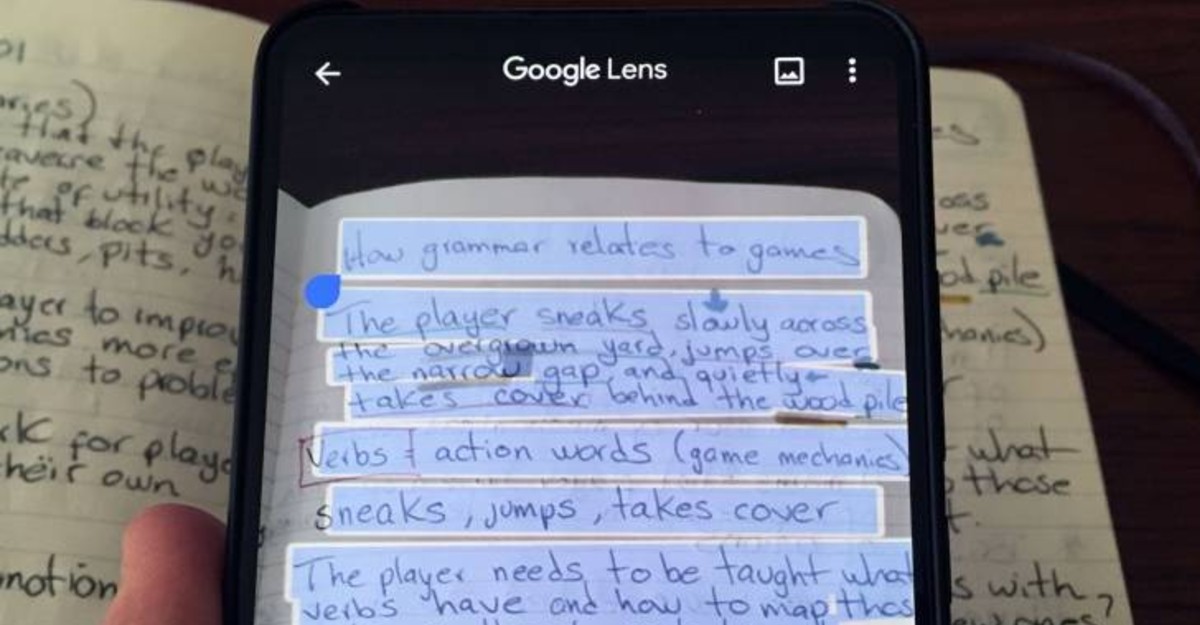 Google Lens
How grammar relates to games
The player sneaks slowly across
the overgrown yard, jumps over
the narrow gap and quietly
takes cover behind the wood pile
Verbs = action words (game mechanics)
sneaks, jumps, takes cover
The player needs to be taught what
verbs have and how to map thos
that the play
the
te of utility.
that block yo
pits,
ayer to improv
more e
ons to proble
for playe
their own
motion
oss
ver
od pile
hanics)
what
those
s with,